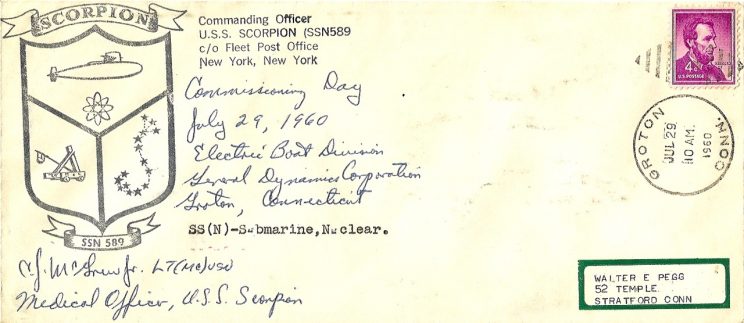 SCORPION
SSN 589
Commanding Officer
U.S.S. SCORPION (SSN589
c/o Fleet Post Office
New York, New York
4¢
U.S. POSTAGE
GROTON CONN.
JUL 29
10 AM
1960
Commissioning Day
July 29, 1960
Electric Boat Division
General Dynamics Corporation
Groton, Connecticut
SS(N)-Submarine,Nuclear.
LT(MC)USN
Medical Officer, U.S.S. Scorpion
WALTER E PEGG
52 TEMPLE
STRATFORD CONN